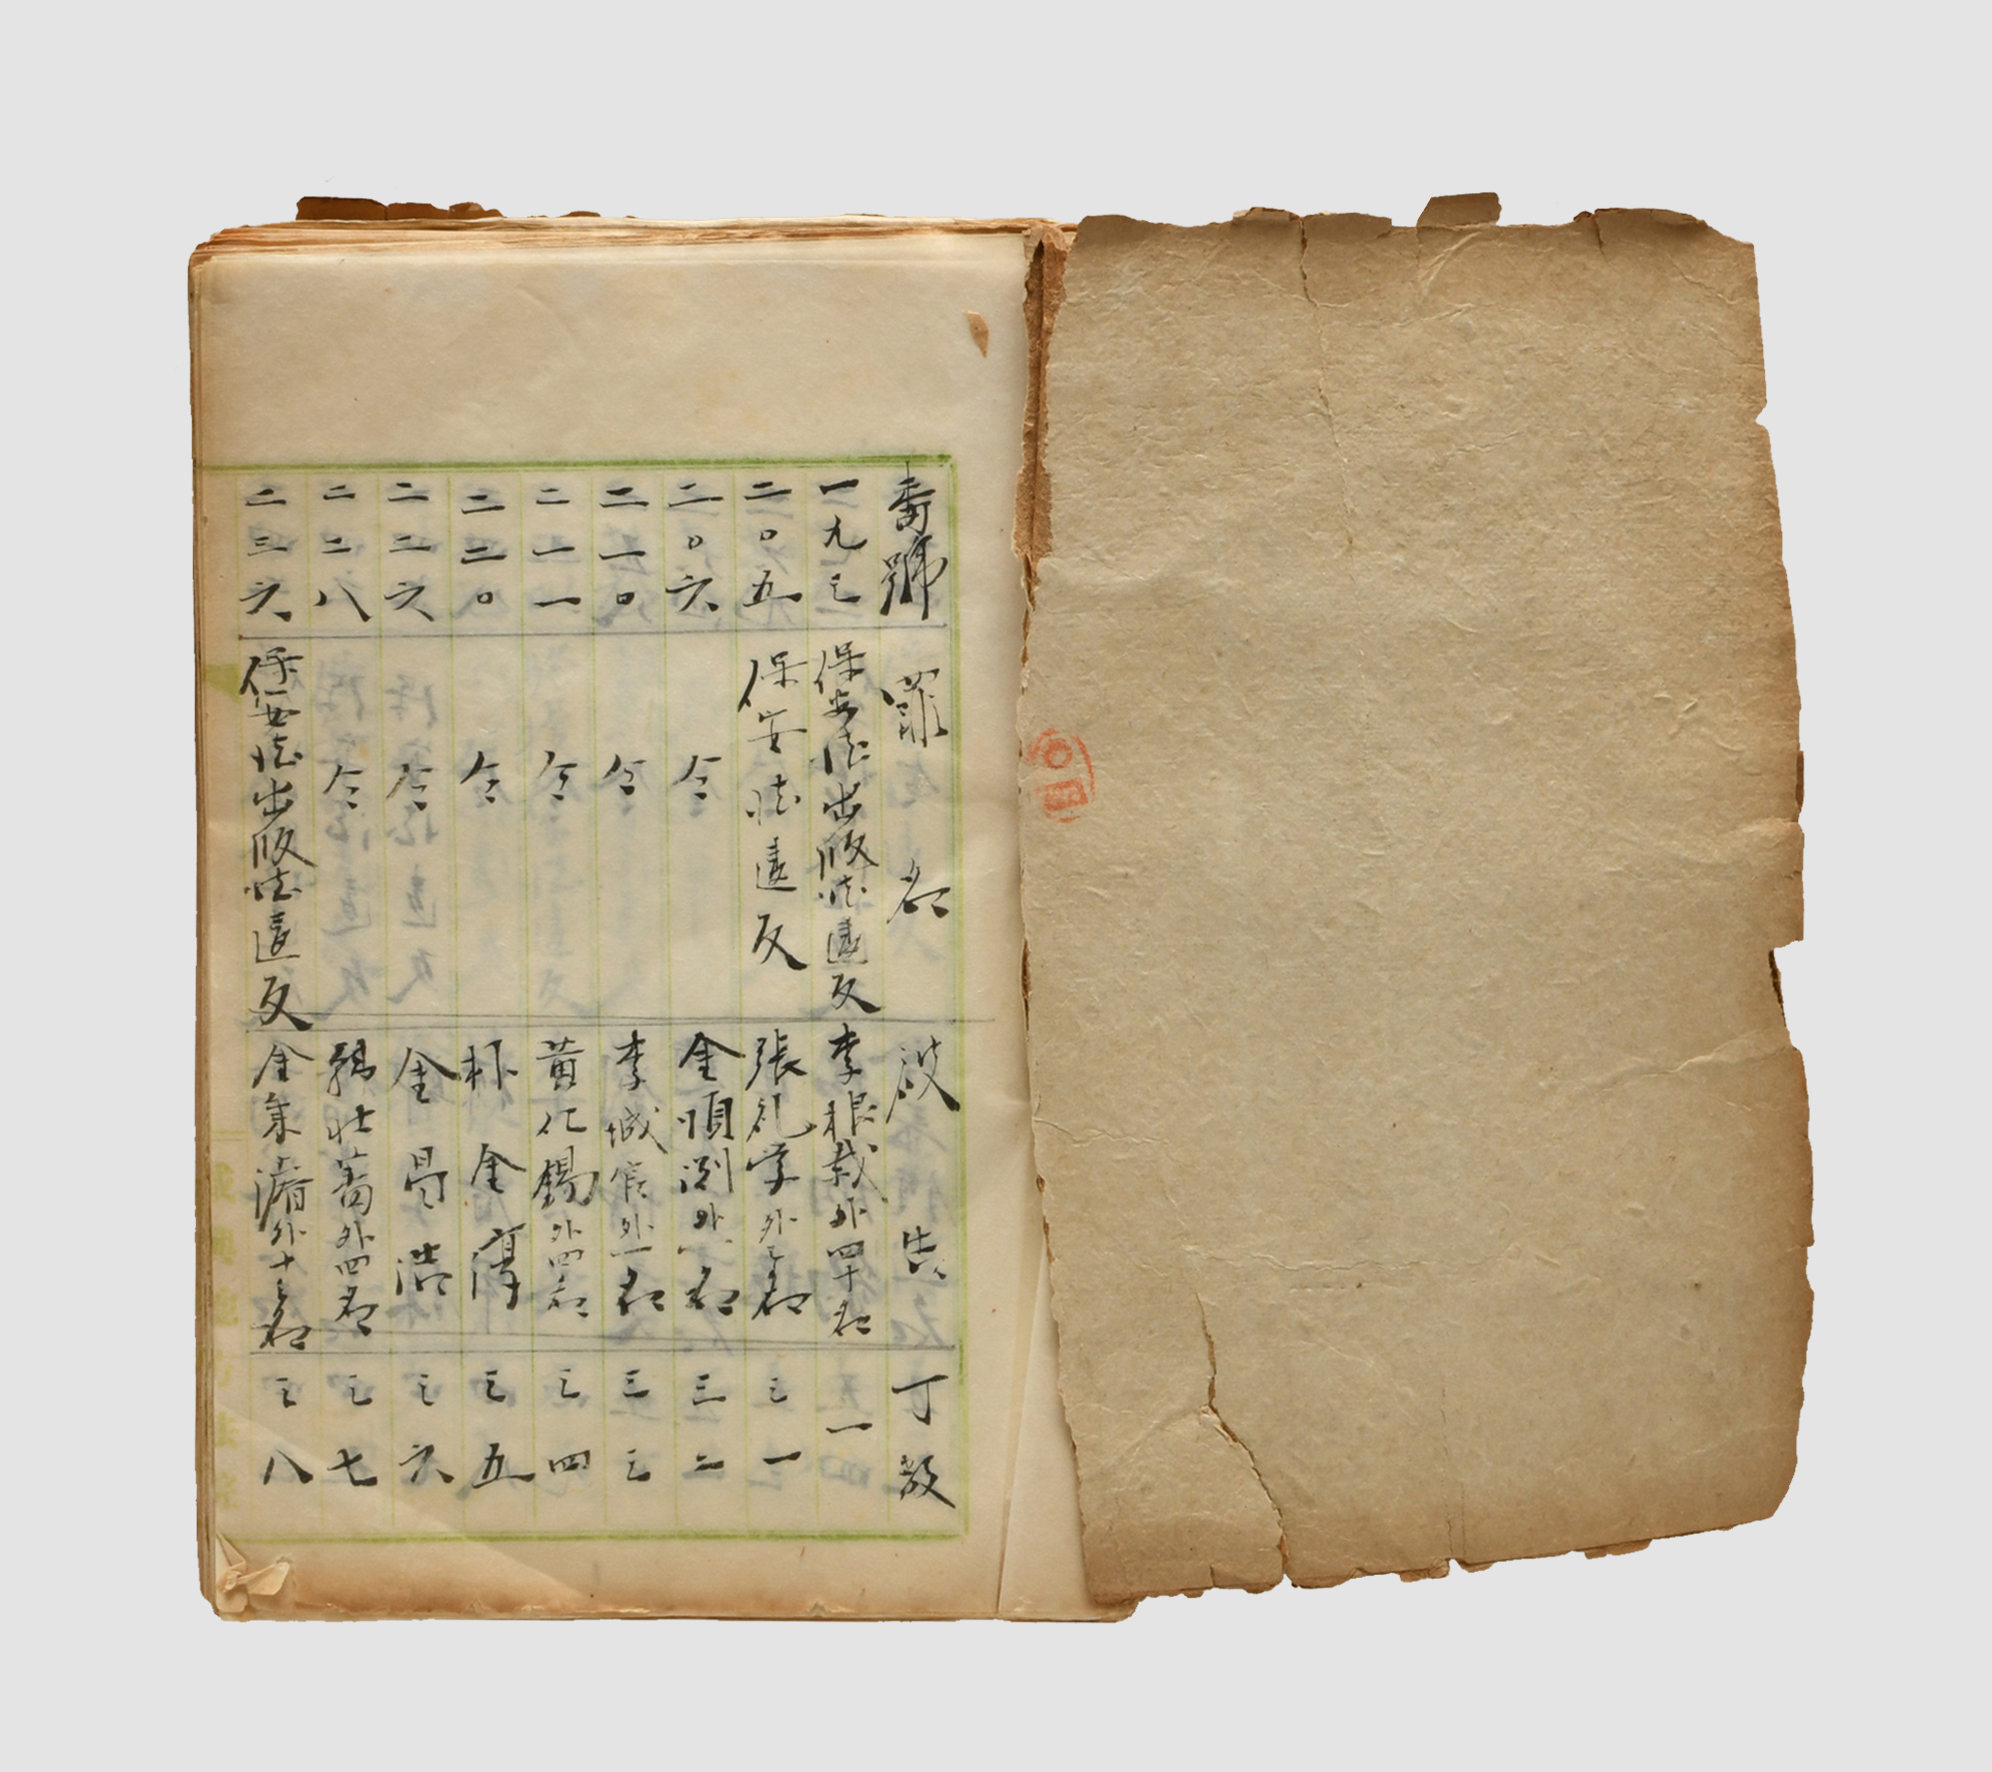 番號 罪名 被告 丁数
一九三 保安法出版法違反 李根載外四十名 一
二〇五 保安法違反 張礼学外三名 三一
二〇六 仝 金順洌外一名 三二
二一〇 仝 李城官外一名 三三
二一一 仝 黄化錫外四名 三四
二二〇 仝 朴金 三五
二二六 仝 金浩 三六
二二八 仝 壮萬外四名 三七
二三六 保安法出版法違反 金外十三名 三八